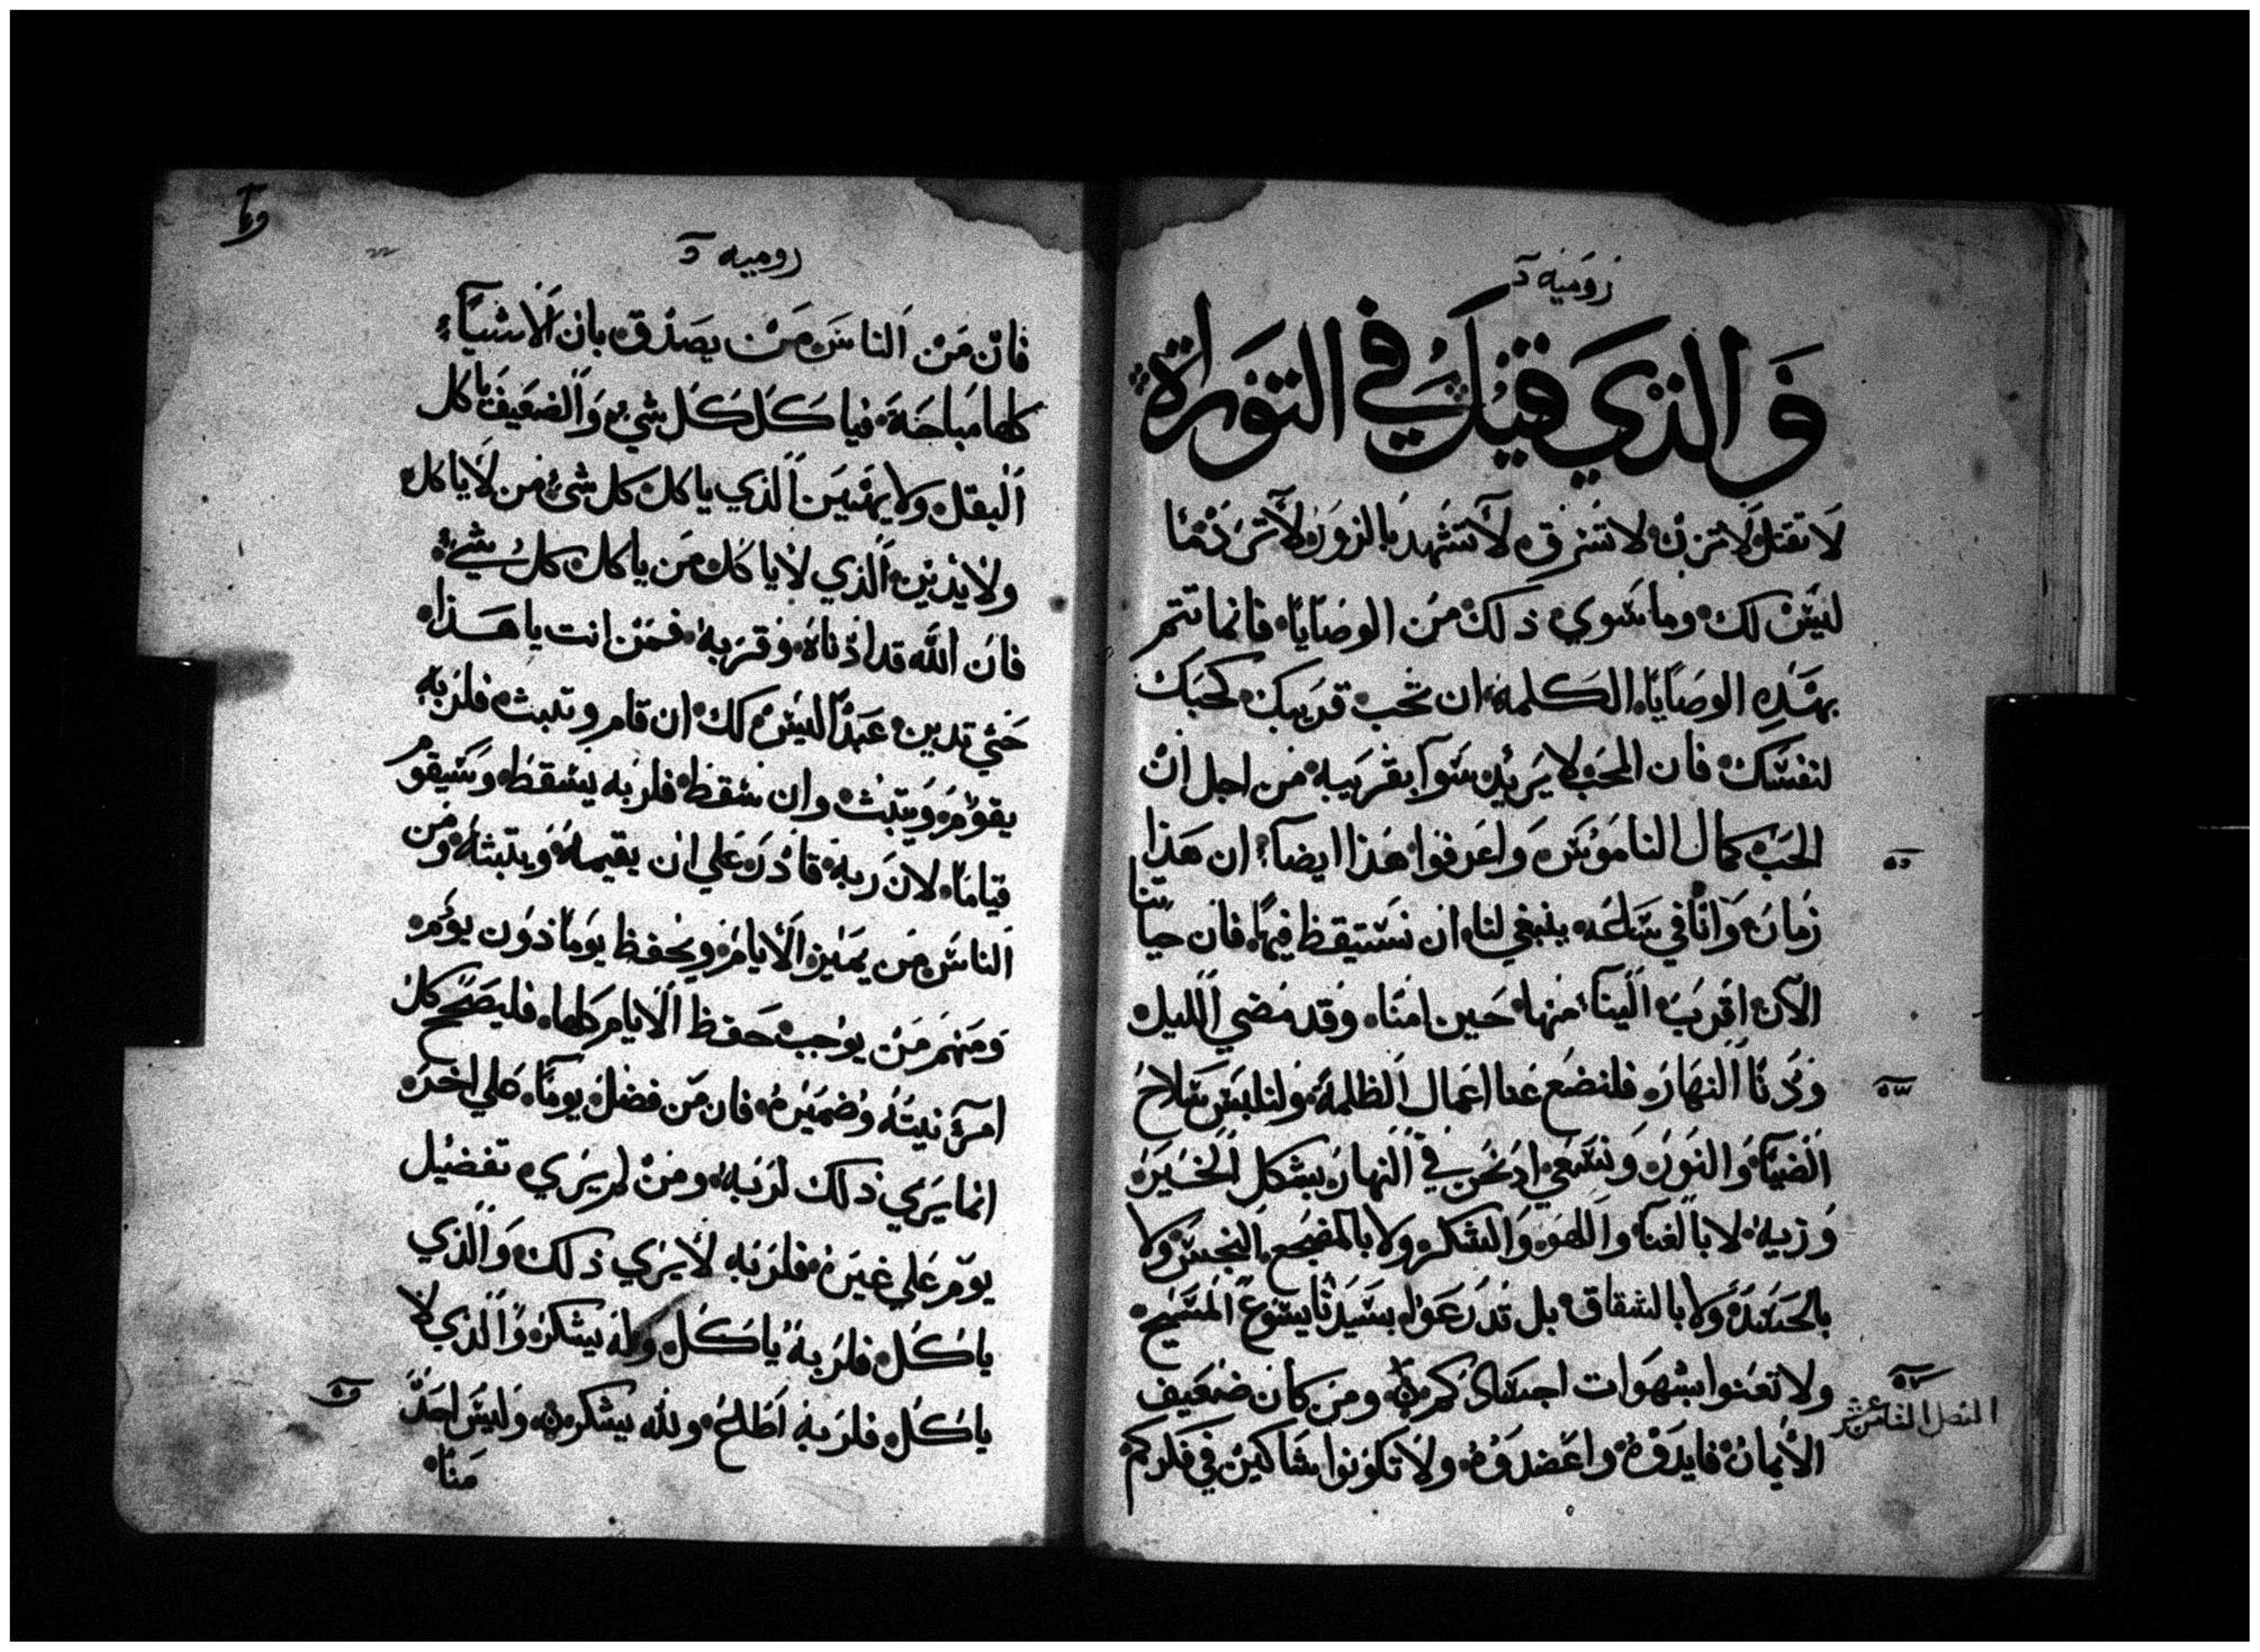 رومية
والذي قيل في التوراة
لا تقتل لا تزن لا تسرق لا تشهد بالزور لا ترد ما
ليس لك وما سوى ذلك من الوصايا فانما تتم
بهذه الوصايا الكلمة ان تحب قريبك كحبك
لنفسك فان المحب لا يريد سوآ بقريبه من اجل ان
الحب كمال الناموس واعرفوا هذا ايضا ان هذا
زمان وانا في ساعة ينبغي لنا ان نستيقظ فيها فان حياتنا
الآن اقرب الينا منها حين امنا وقد مضي الليل
ودنا النهار فلنضع عنا اعمال الظلمة ولنلبس سلاح
الضيآ والنور ونسعي اذ نحن في النهار بشكل الخير
وزيه لا بالغنا واللهو والسكر ولا بالمضجع النجس ولا
بالحسد ولا بالشقاق بل تدرعوا بسيدنا يسوع المسيح
ولا تعنوا بشهوات اجسادكم ومن كان ضعيف
الفصل الثامن عشر
الايمان فايدوه واعضدوه ولا تكونوا شاكين في فكركم
رومية
فان من الناس من يصدق بان الاشيآء
كلها مباحة فياكل كل شيء والضعيف ياكل
البقل ولا يهنين الذي ياكل كل شئ من لا ياكل
ولا يدين الذي لا ياكل من ياكل كل شيء
فان الله قد ادناه وقربه فمن انت يا هذا
حتي تدين عبدا ليس لك ان قام وتبث فلربه
يقوم ويتبث وان سقط فلربه يسقط وسيقوم
قياما لان ربه قادر علي ان يقيمه ويتبثه ومن
الناس من يميز الايام ويحفظ يوما دون يوم
ومنهم من يوجب حفظ الايام كلها فليصح كل
امرئ نيته وضميره فان من فضل يوما علي اخر
انما يري ذلك لربه ومن لم يري تفضيل
يوم علي غيره فلربه لا يري ذلك والذي
ياكل فلربه ياكل وله يشكر والذي لا
ياكل فلربه لا ولله يشكر وليس احد
منا